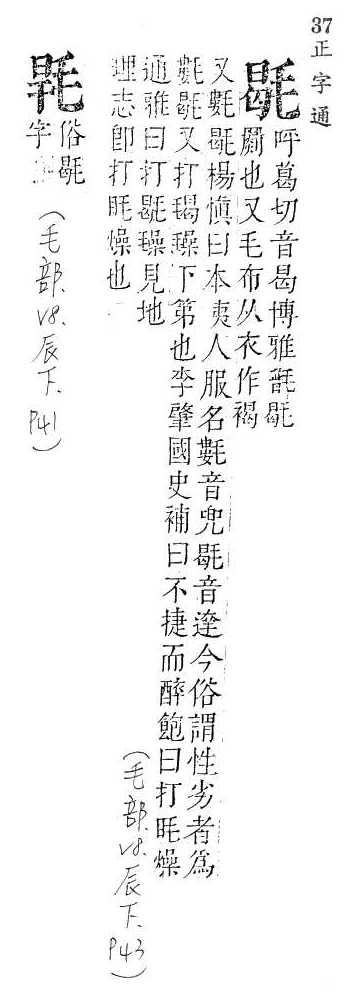 37
正字通
毼
呼葛切音曷博雅毼
罽也又毛布从衣作褐
又氀毼楊愼曰本夷人服名氀音兜毼音達今俗謂性劣者爲
氀毼又打璪下第也李肇國史補曰不捷而醉飽曰打眊燥
通雅曰打毼璪見地
理志卽打眊燥也
(毛部.V8.辰下.P43)
俗毼
字
(毛部.V8.辰下.P41)